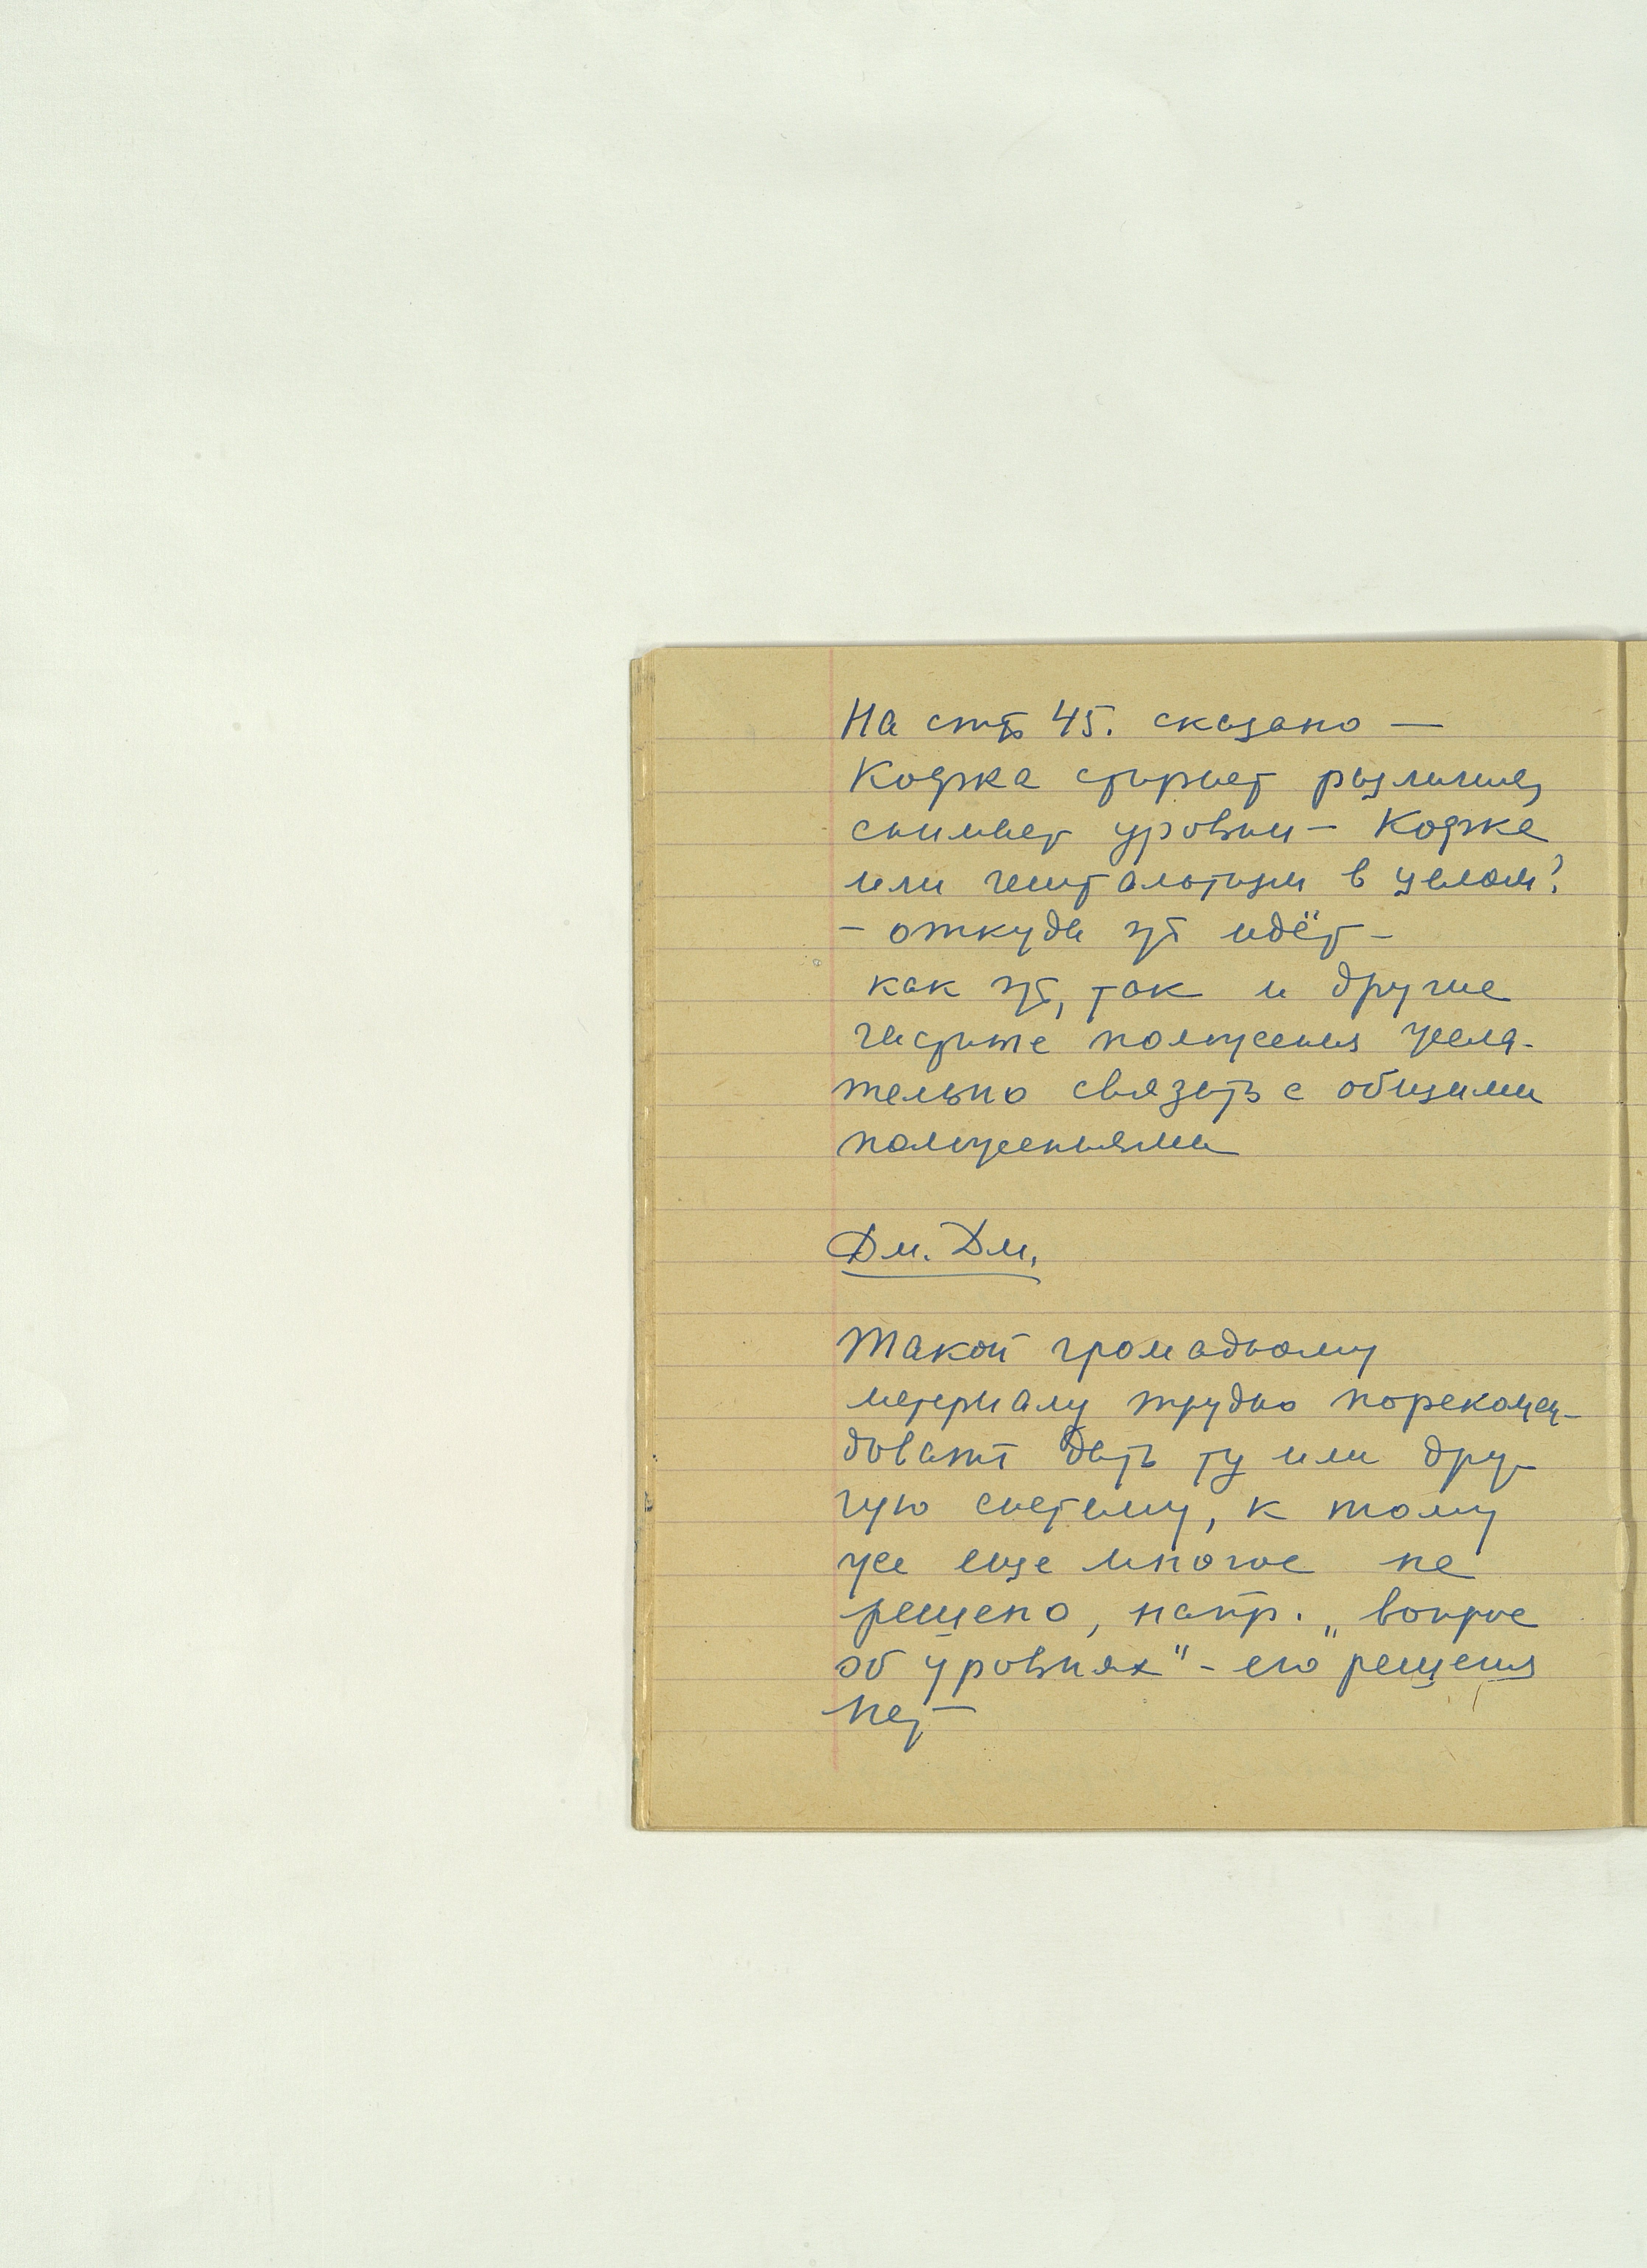 На стр 45. сказано —
Кофка стирает различия,
снимает уровни — Кофка
или гештальтизм в целом?
— откуда эт идёт —
как эт, так и другие
частные положения жела-
тельно связать с общими
положениями
Дм. Дм.
Такой громадному
материалу трудно порекомен-
довать дать ту или дру-
гую систему, к тому
же еще многое не
решено, напр. „вопрос
об уровнях" - его решения
нет —